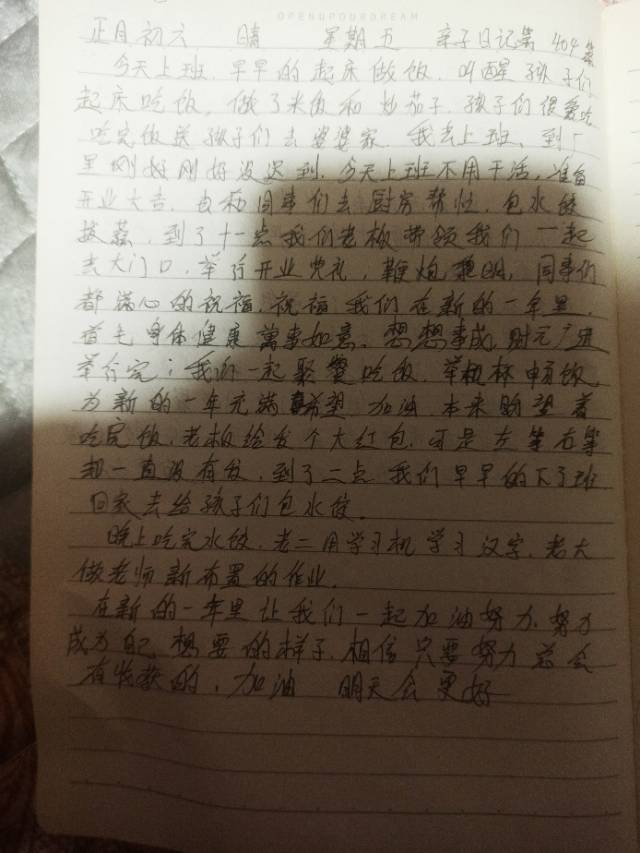 OPENUPOURDREAM
正月初六 晴 星期五 亲子日记第404篇
今天上班，早早的起床做饭，叫醒孩子们
起床吃饭，做了米饭和炒茄子，孩子们很爱吃
吃完饭送孩子们去婆婆家，我去上班，到厂
里刚好刚好没迟到，今天上班不用干活，准备
开业大吉，我和同事们去厨房帮忙，包水饺
拔蒜，到了十一点我们老板带领我们一起
去大门口，举行开业典礼，鞭炮
，同事们
都满心的祝福，祝福我们在新的一年里，
首先身体健康萬事如意，想想事成，财元广进
举行完；我们一起聚餐吃饭，举杯畅饮，
为新的一年充满希望，加油，本来盼望着
吃完饭，老板给发个大红包，可是左等右等
却一直没有发，到了二点我们早早的下了班
回家去给孩子们包水饺，
晚上吃完水饺，老二用学习机学习汉字，老大
做老师新布置的作业，
在新的一年里让我们一起加油努力，努力
成为自己想要的样子，相信只要努力总会
有收获的，加油 明天会更好